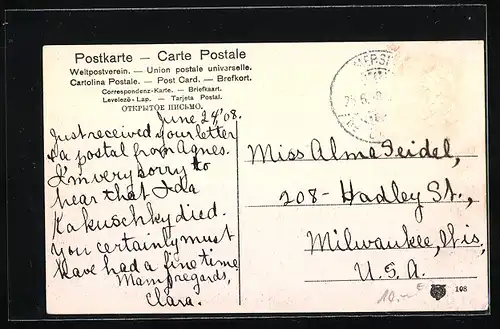 Postkarte — Carte Postale
Weltpostverein. — Union postale universelle.
Cartolina Postale. — Post Card. — Brefkort.
Correspondenz-Karte. — Briefkaart.
Levelező-Lap. — Tarjeta Postal.
ОТКРЫТОЕ ПИСЬМО.
June 24/08.
Just received your letter
& a postal from Agnes.
I'm very sorry to
hear that Ida
Kakuschky died.
You certainly must
have had a fine time.
Many regards,
Clara.
Miss Alma Seidel,
208- Hadley St.,
Milwaukee, Wis.,
U. S. A.
10.-
108